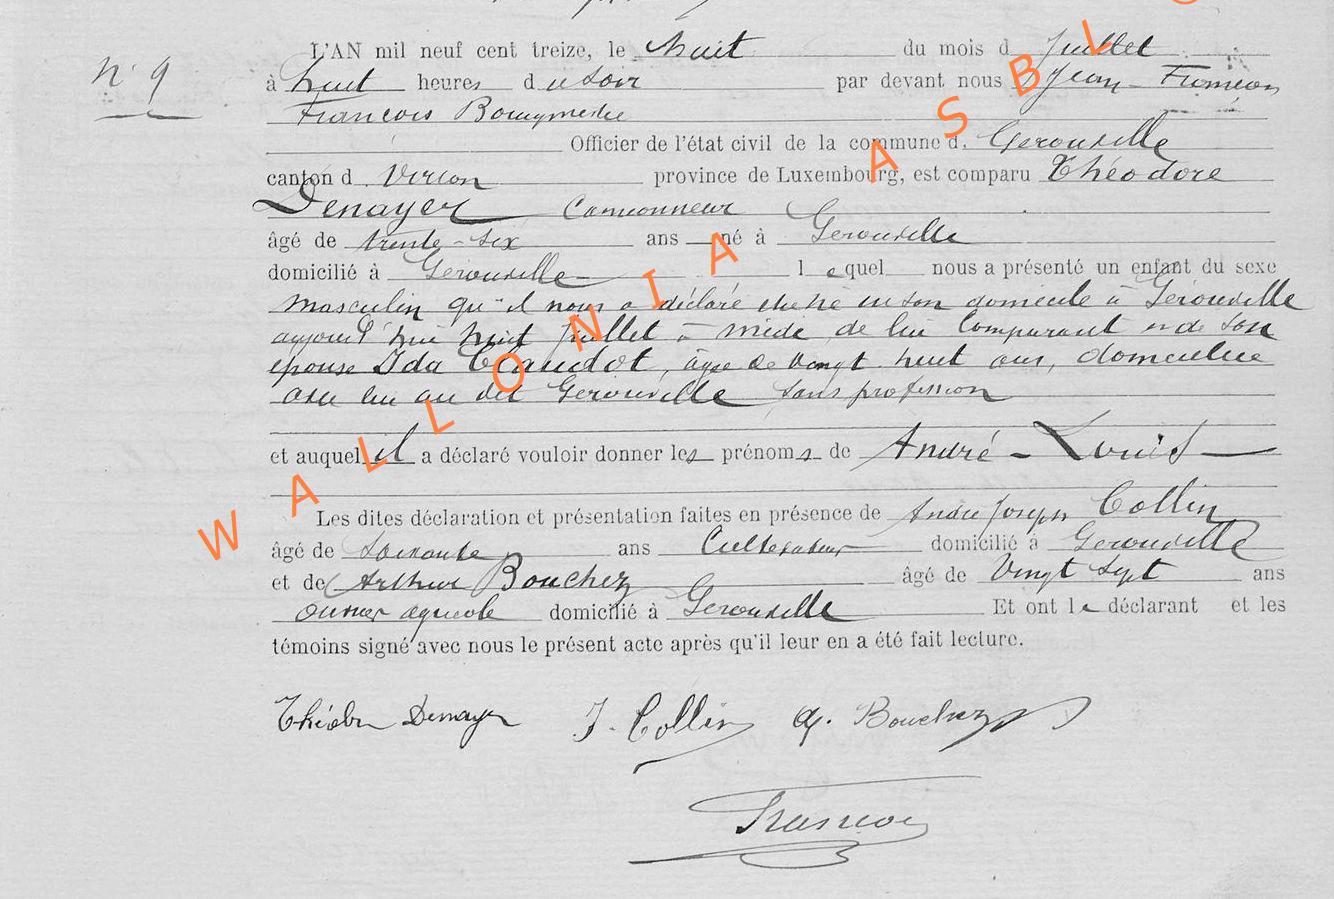 N° 9
L'AN mil neuf cent treize, le huit du mois d Juillet
à huit heures du soir par devant nous Jean-
François Bourgmestre
Officier de l'état civil de la commune d. Gerouville
canton d. Virton province de Luxembourg, est comparu Théodore
Denayer Camionneur
âgé de trente-six ans né à Gerouville
domicilié à Gérouville lequel nous a présenté un enfant du sexe
masculin qu'il nous a déclaré être né en son domicile à Gérouville
aujourd'hui huit Juillet à midi, de lui comparant et de son
épouse Ida, âgée de vingt huit ans, domiciliée
avec lui au dit Gerouville sans profession
et auquel il a déclaré vouloir donner les prénoms de André-Louis
Les dites déclaration et présentation faites en présence de André Joseph Collin
âgé de soixante ans Cultivateur domicilié à Gerouville
et de Arthur Bouchez âgé de Vingt sept ans
ouvrier agricole domicilié à Gerouville Et ont le déclarant et les
témoins signé avec nous le présent acte après qu'il leur en a été fait lecture.
Denayer J. Collin A. Bouchez
François
WALLONIA ASBL